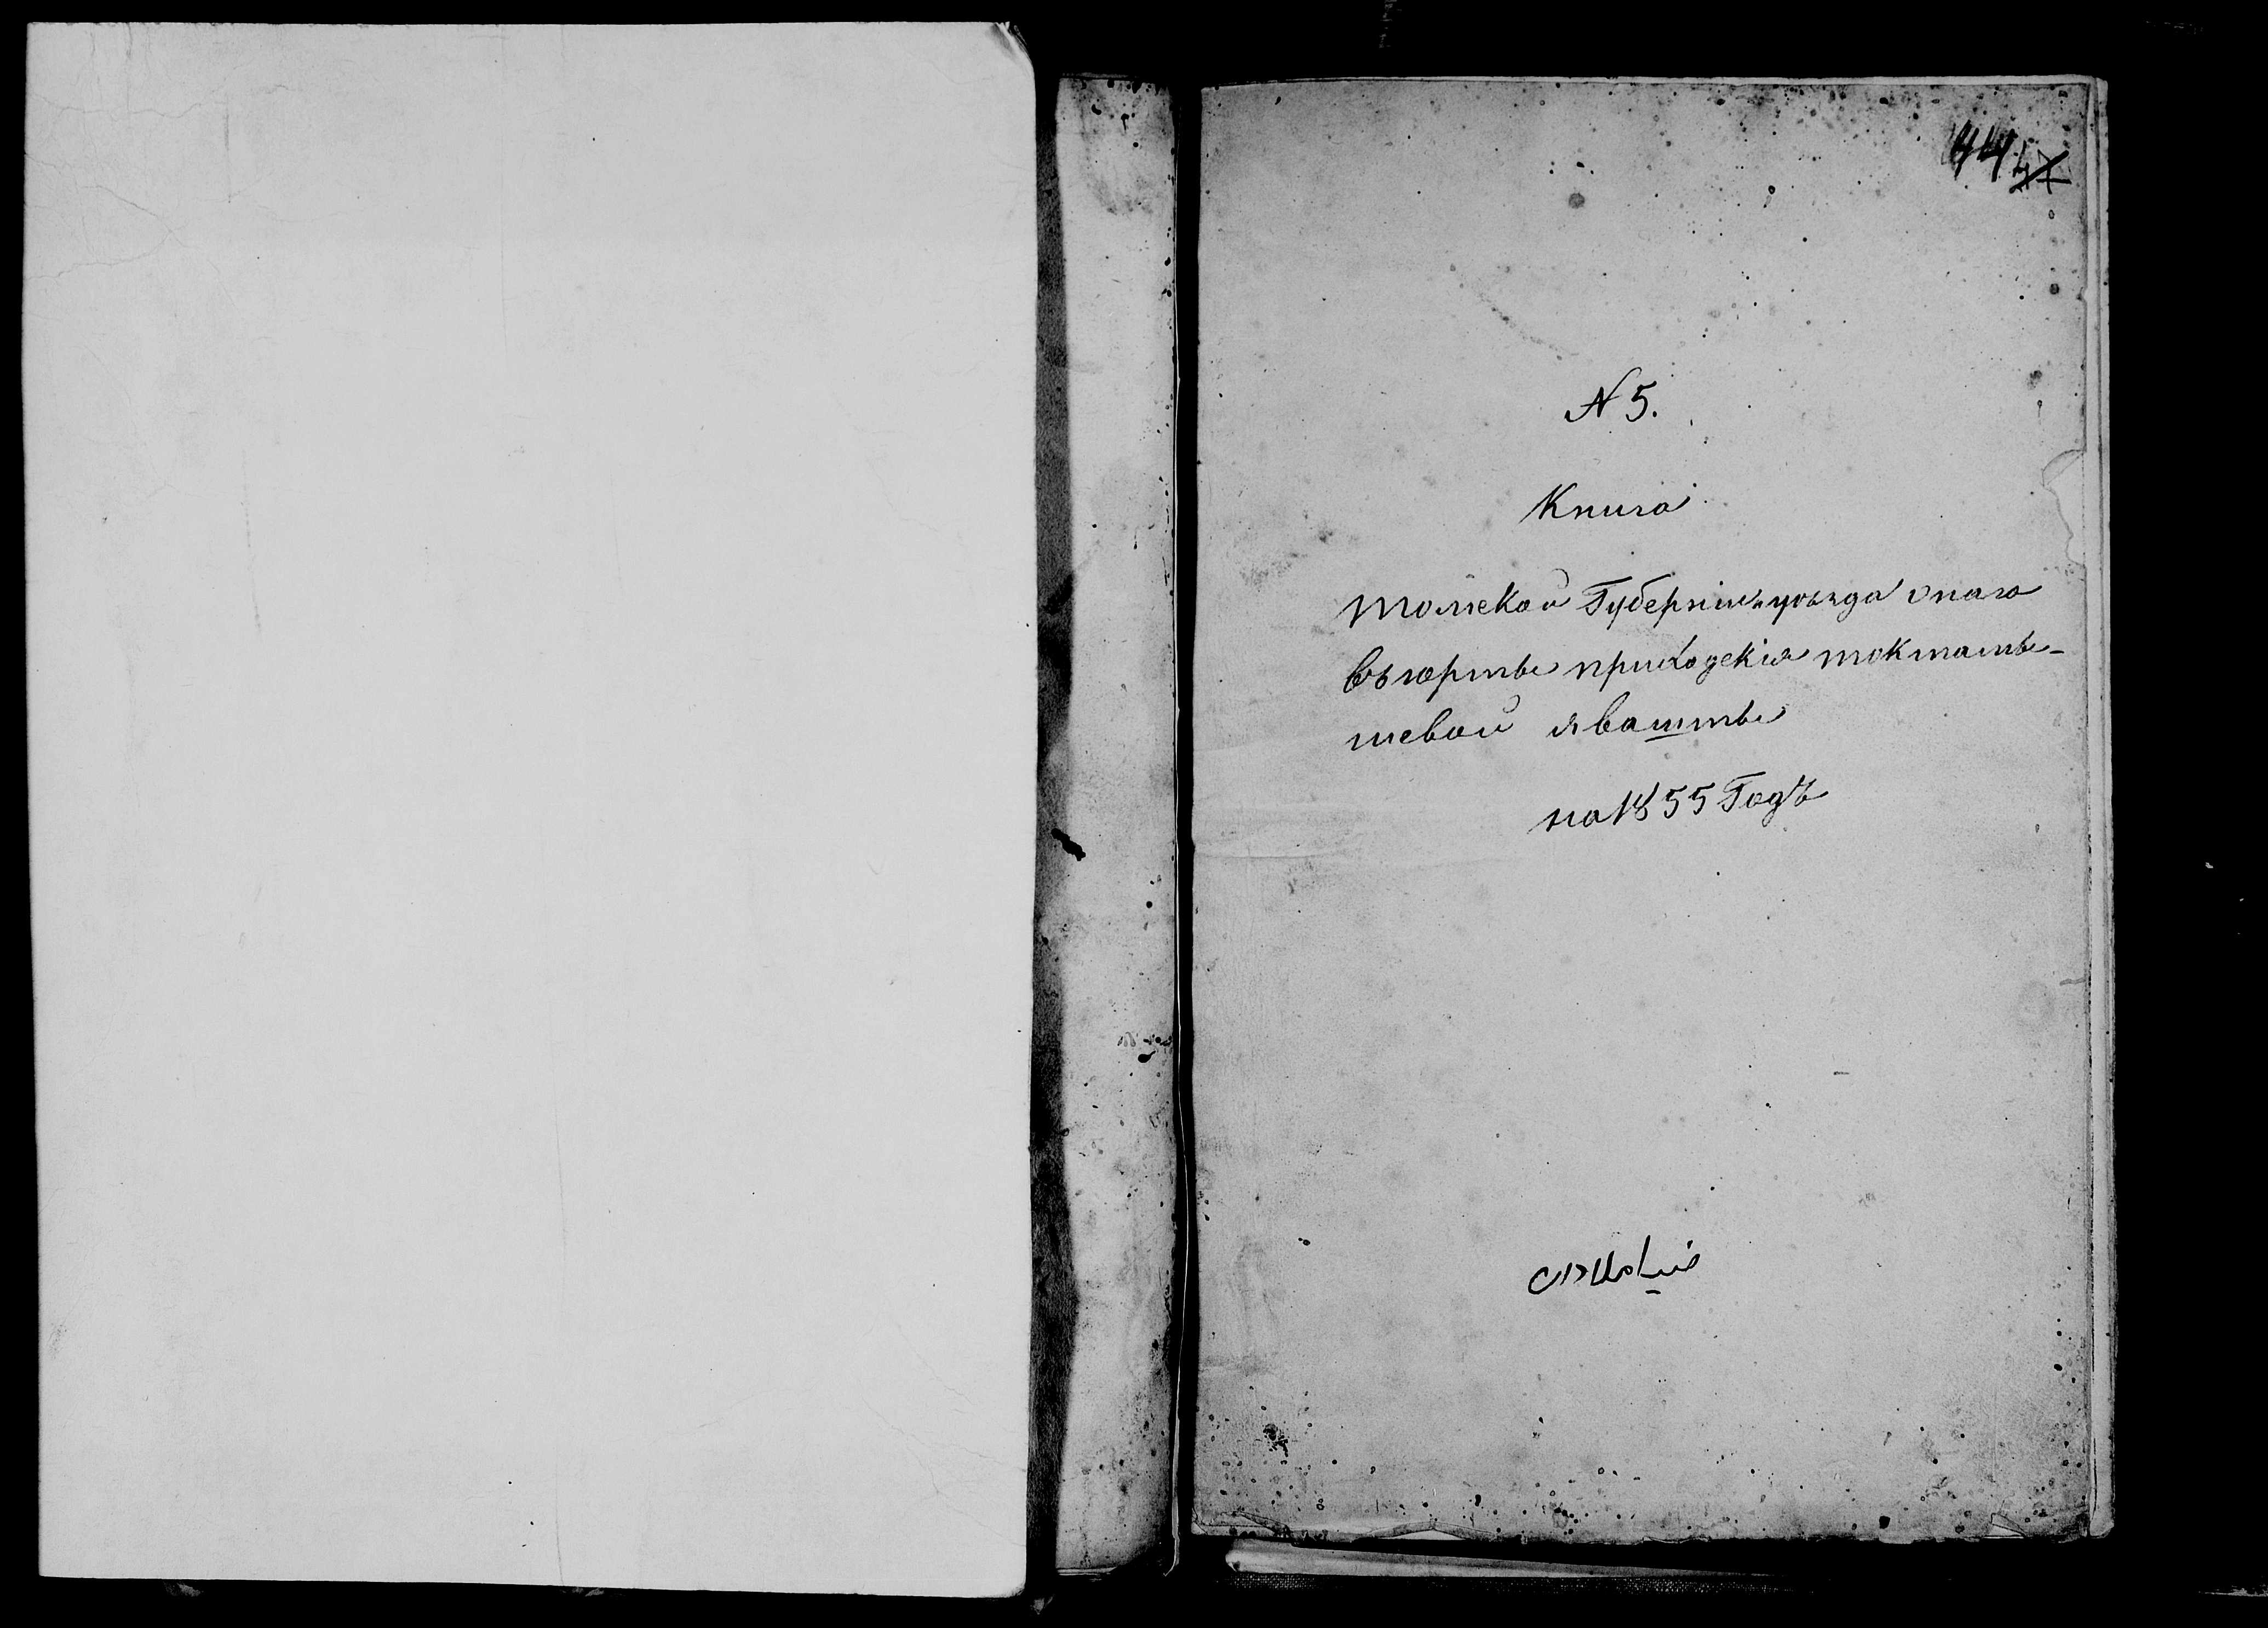 44 47
N 5.
Книга
Томской Губернiи уѣзда онаго
въ юртъ приходскiя токтамы-
шевой
на 1855 Годъ